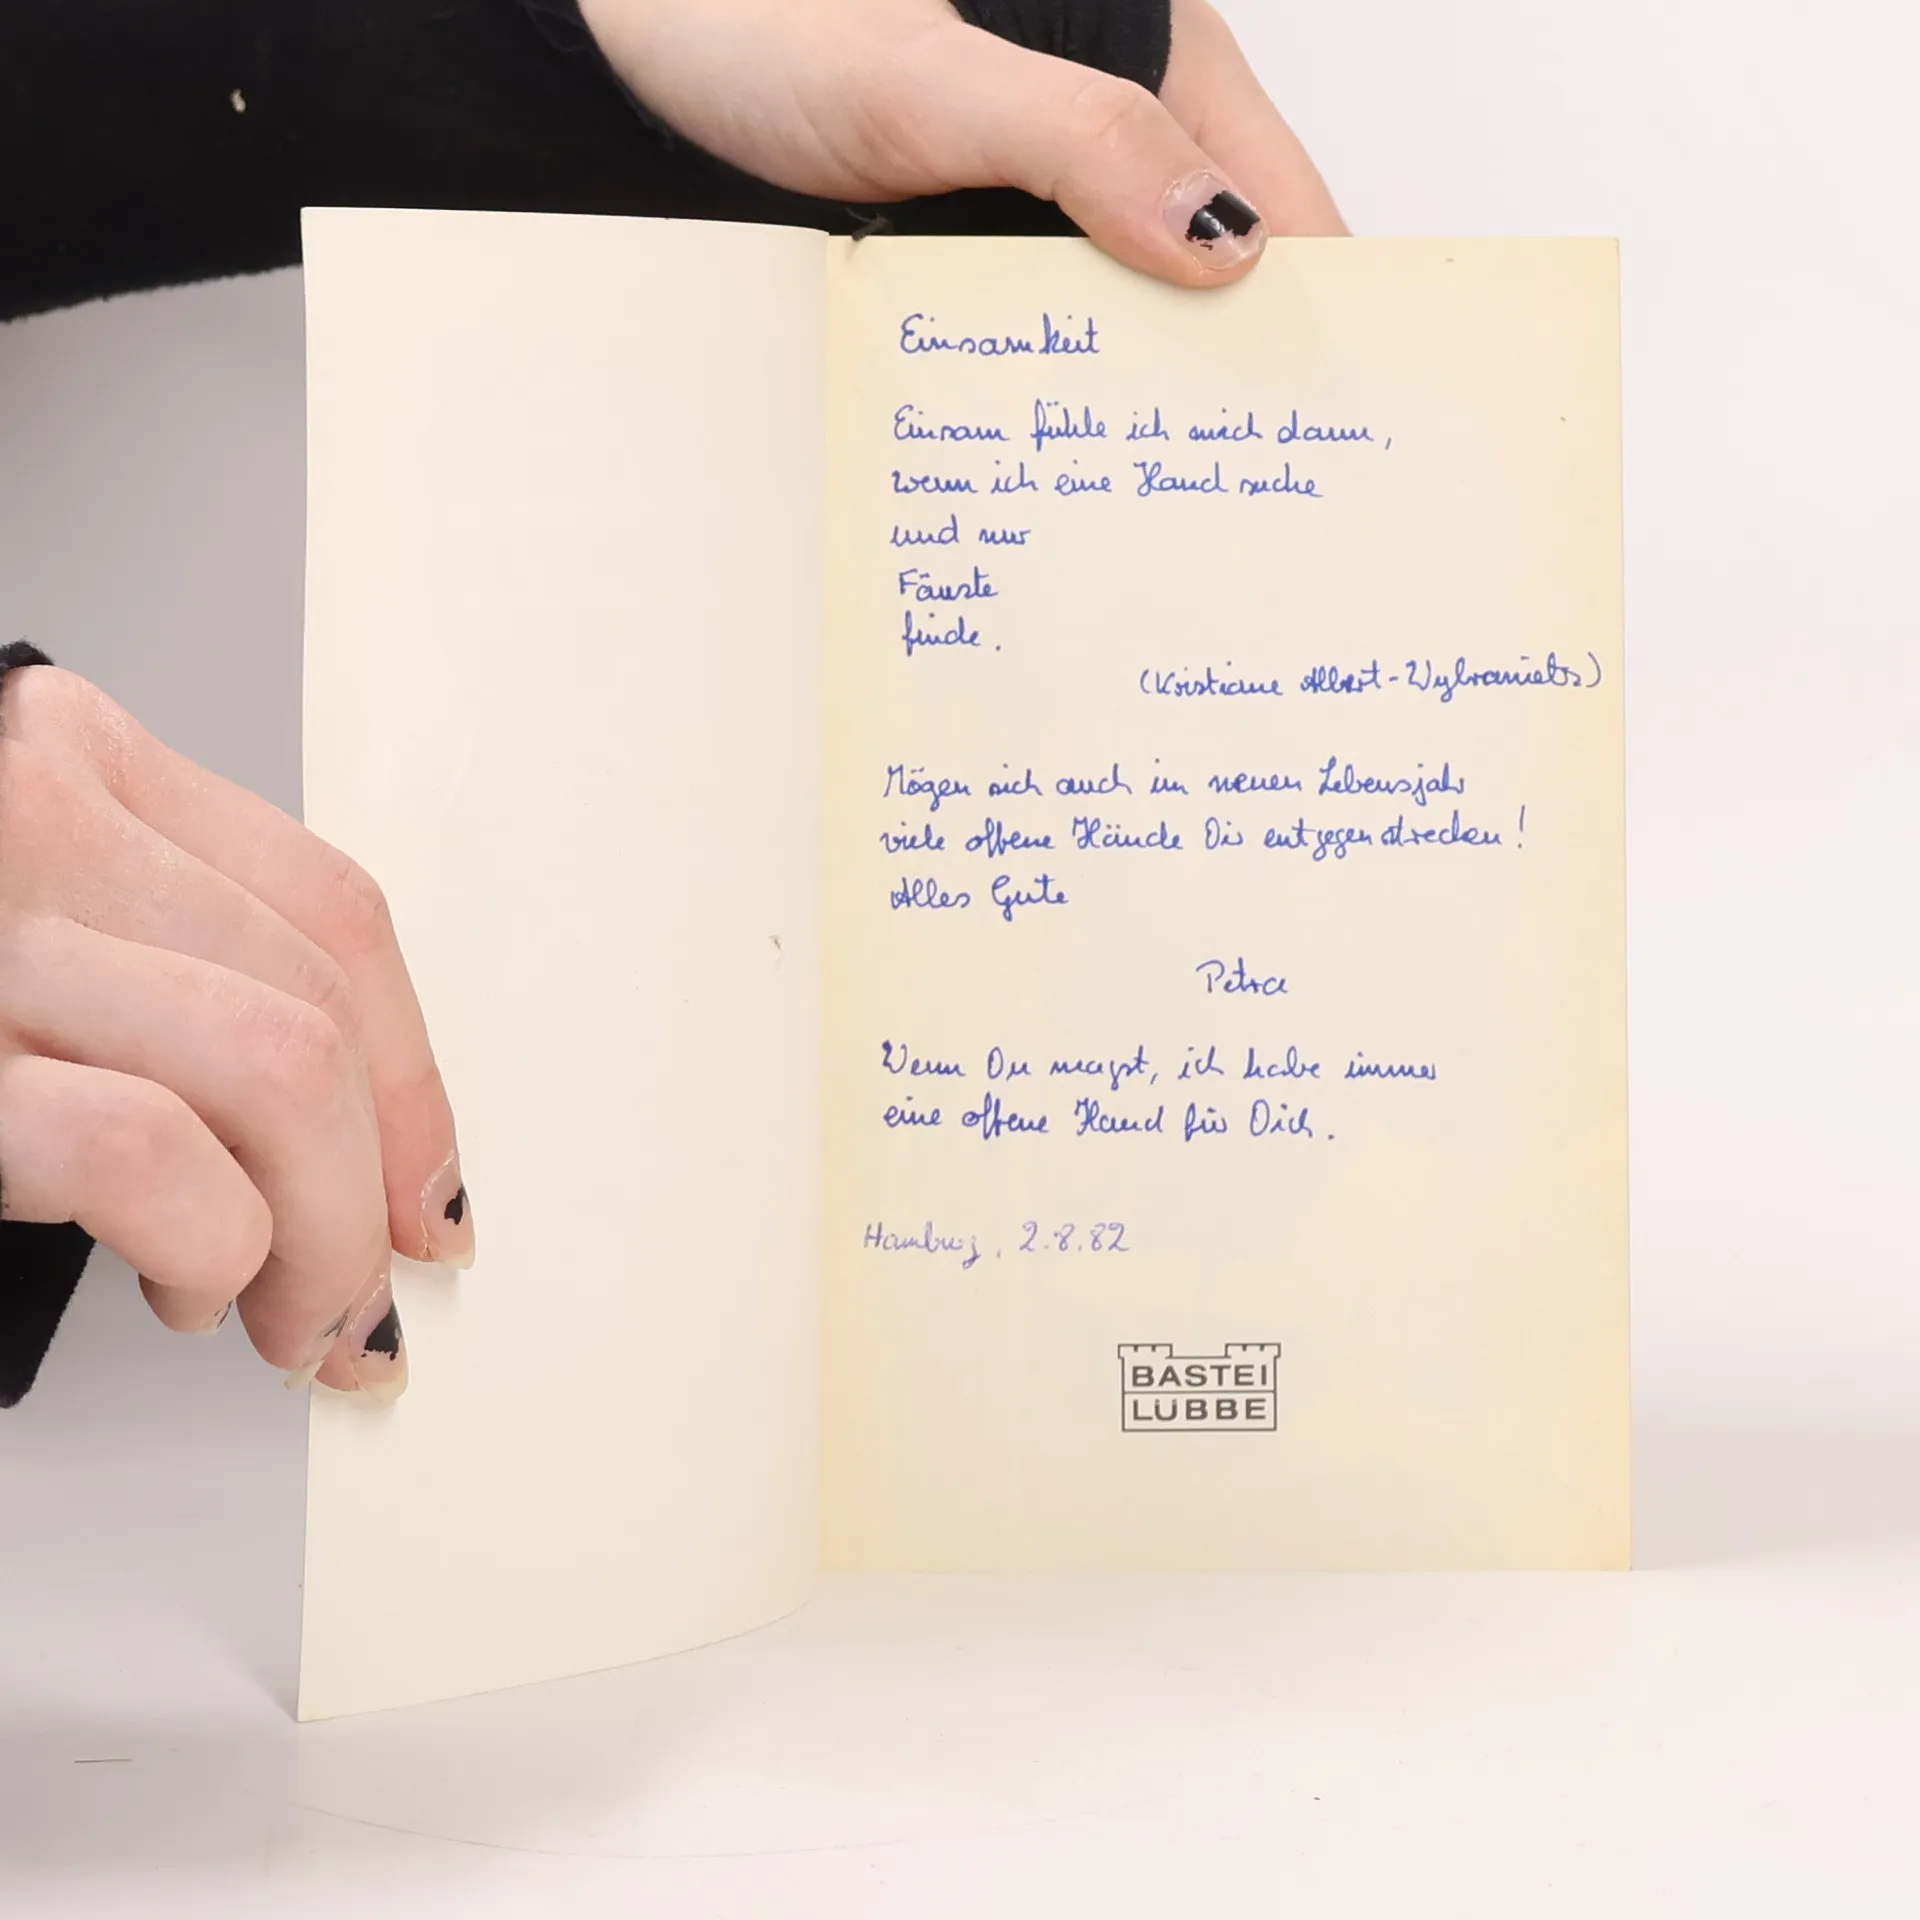 Einsamkeit
Einsam fühle ich mich dann,
wenn ich eine Hand suche
und nur
Fäuste
finde.
(Kristiane Allert-Wybranietz)
Mögen sich auch im neuen Lebensjahr
viele offene Hände Dir entgegenstrecken!
Alles Gute
Petra
Wenn Du magst, ich habe immer
eine offene Hand für Dich.
Hamburg, 2.8.82
BASTEI
LÜBBE